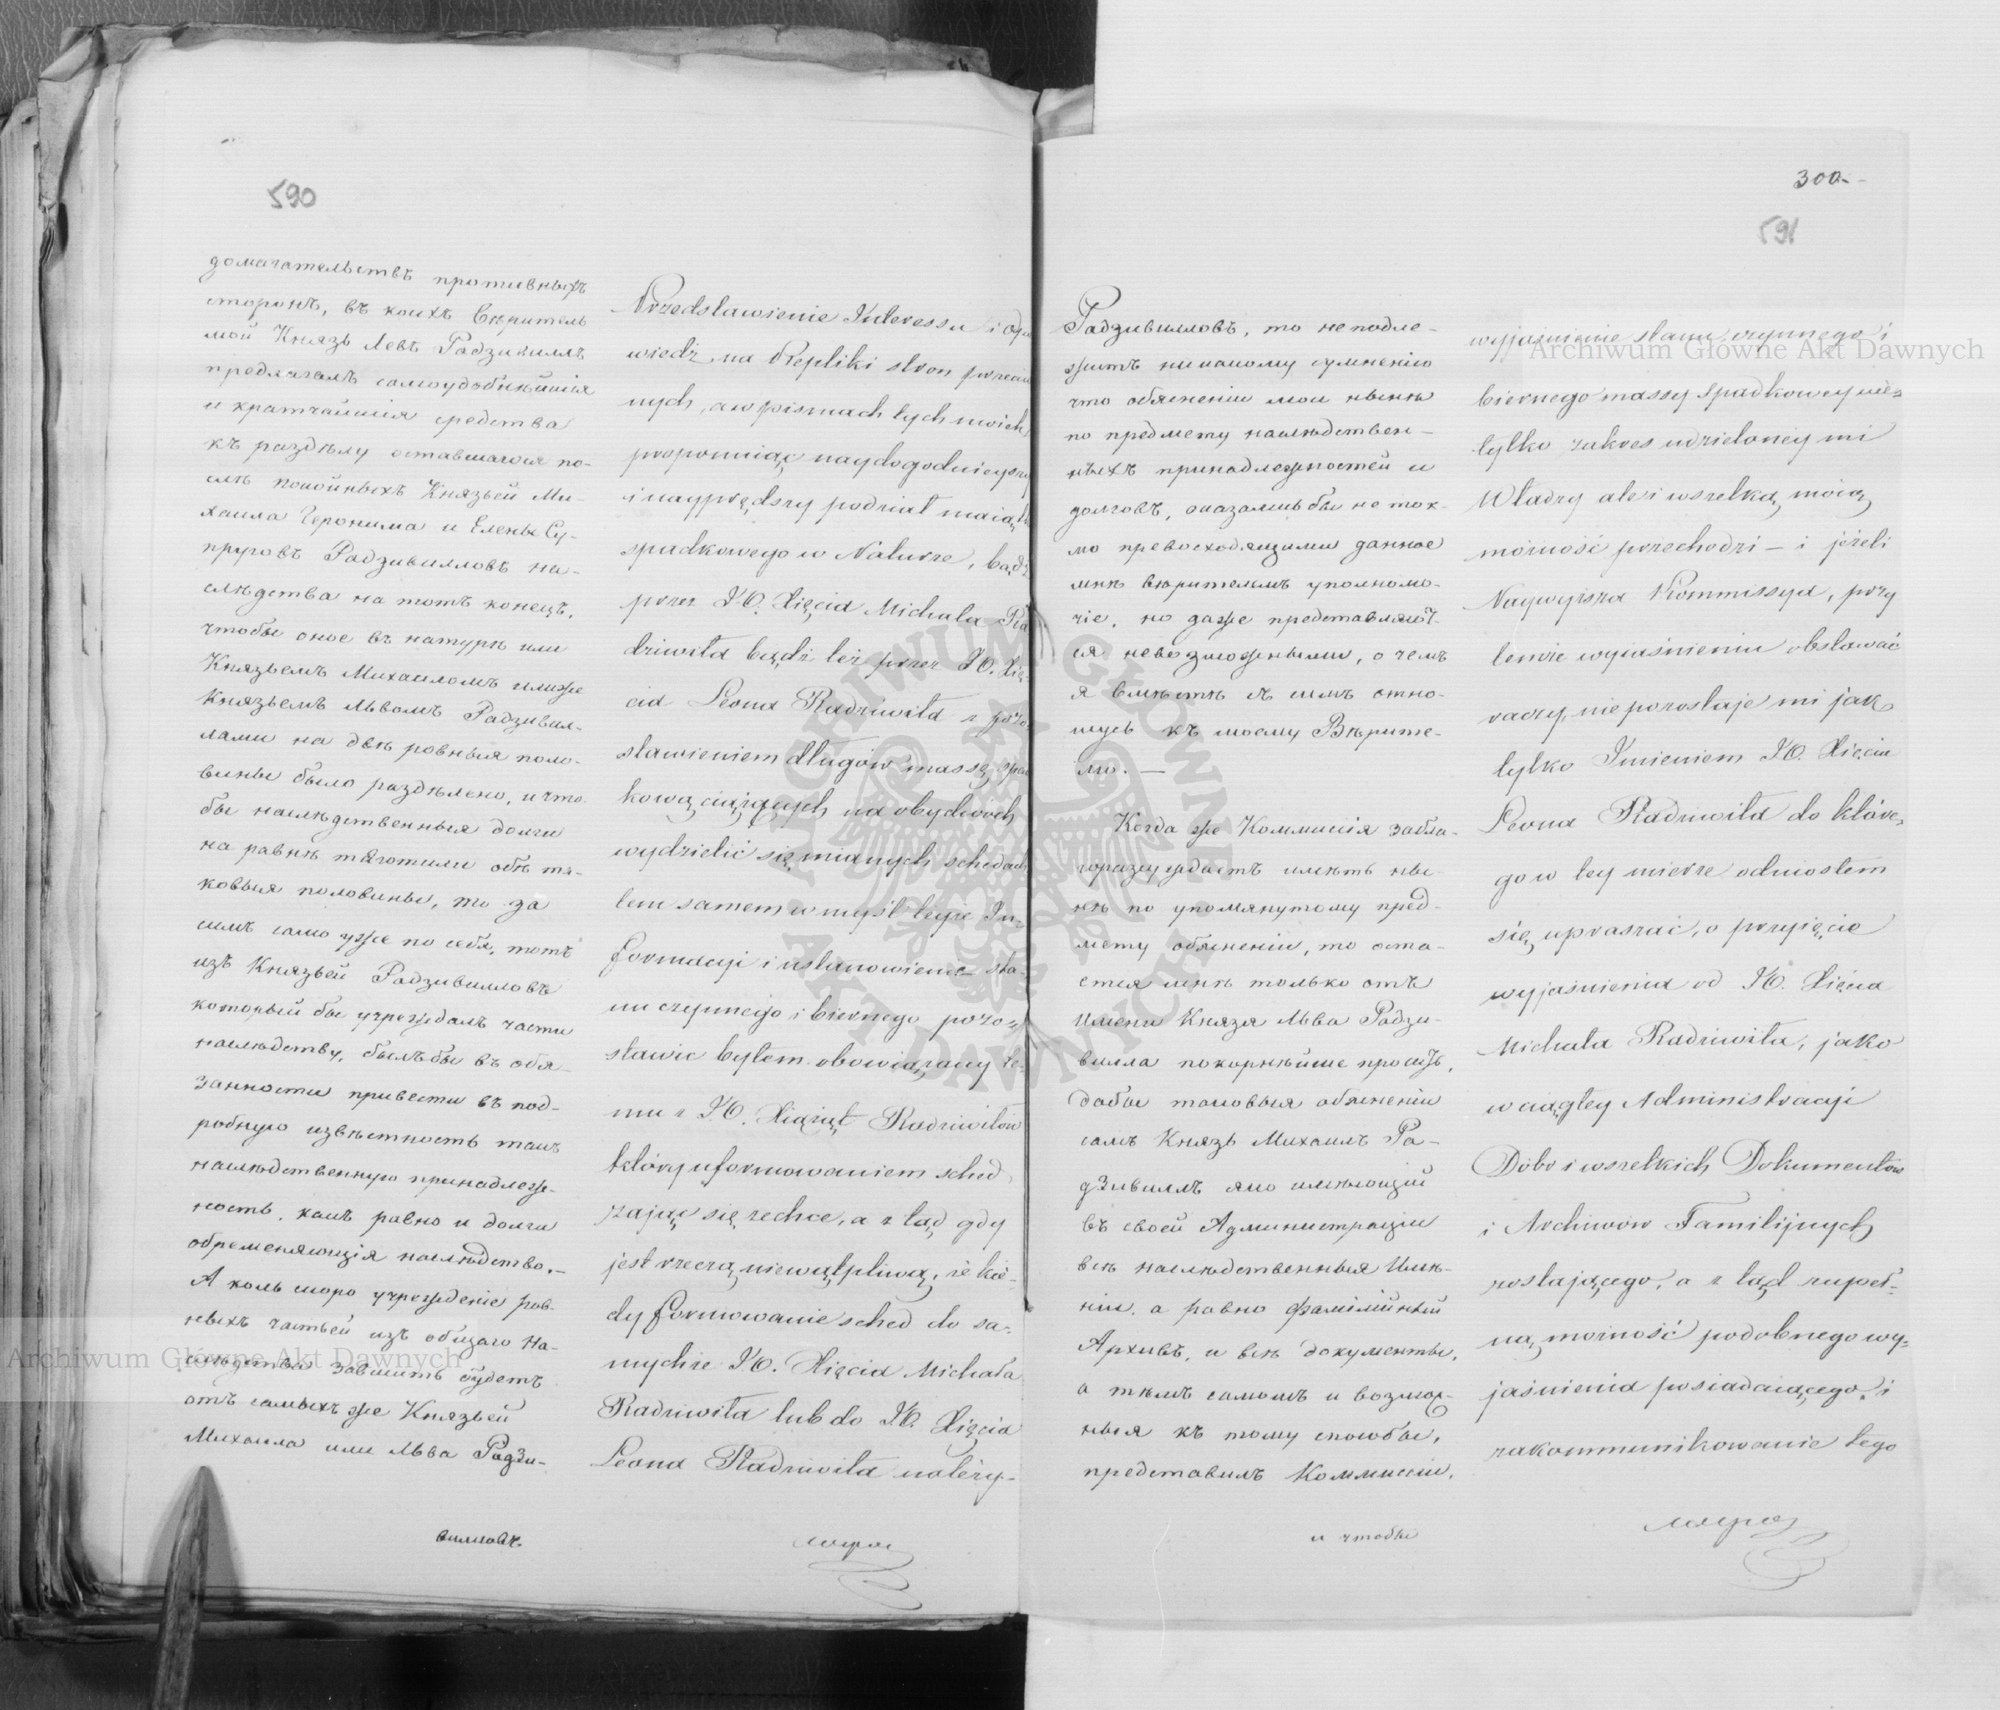 590
домагательствъ противныхъ
сторонъ, въ коихъ Вѣритель
мой Князь Левъ Радзивилъ
предлагалъ самоудобнѣйшія
и кратчайшія средства
къ раздѣлу оставшагося по-
слѣ покойныхъ Князьей Ми-
хаила Іеронима и Елены Су-
пруговъ Радзивилловъ на-
слѣдства на тотъ конецъ,
чтобы оное въ натурѣ или
Княземъ Михаиломъ илиже
Княземъ Львомъ Радзивил-
лами на двѣ ровныя поло-
вины было раздѣлено, и что-
бы наслѣдственныя долги
на равнѣ тяготили обѣ та-
ковыя половины, то за
симъ само уже по себѣ, тотъ
изъ Князьей Радзивилловъ
который бы учреждалъ части
наслѣдству, былъ бы въ обя-
занности привести въ под-
робную извѣстность такъ
наслѣдственную принадлеж-
ность, какъ равно и долги
обременяющія наслѣдство.—
А коль скоро учрежденіе рав-
ныхъ частей изъ общаго на-
слѣдства зависить будетъ
отъ самыхъ же Князьей
Михаила или Льва Радзи-
вилловъ.
Przedstawienie Interessu i odpo
wiedź na Repliki stron przeciw
nych, a w pismach tych moich
proponując naydogodnieyszy
i nayprędszy podział maiątk
spadkowego w Naturze, bądź
przez JO. Xięcia Michała Ra
dziwiłła bądź też przez JO. Xię-
cia Leona Radziwiłła z pozo
stawieniem długów massę spad
kową ciążących na obydwóch
wydzielić się mianych schedach
tem samem w myśl teyże In-
formacji i ustanowienie sta-
nu czynnego i biernego pozo-
stawić byłem obowiązany te-
mu z JO. Xiążąt Radziwiłłów
który uformowaniem sched
zająć się zechce, a z tąd gdy
jest rzeczą niewątpliwą, że kie-
dy formowanie sched do sa-
mychże JO. Xięcia Michała
Radziwiłła lub do JO. Xięcia
Leona Radziwiłła należy-
300.-
591
Радзивилловъ, то не подле-
житъ никакому сумнению
что обясненіи мои нынѣ
по предмету наслѣдствен-
ныхъ принадлежностей и
долговъ, оказались бы не ток-
мо превосходящими данное
мнѣ вѣрителемъ уполномо-
чіе, но даже представляют-
ся невозможными, о чемъ
я вмѣстѣ съ симъ отно-
шусь къ моему Вѣрите-
лю.—
Когда же Коммисія забла-
горазсуждаетъ имѣть ны-
нѣ по упомянутому пред-
мету обясненіи, то оста-
ется мнѣ только отъ
имени Князя Льва Радзи-
вилла покорнѣйше просить,
дабы таковыя обясненіи
самъ Князь Михаилъ Ра-
дзивилъ яко имѣющій
въ своей Администраціи
всѣ наслѣдственныя Имѣ-
ніи, а равно фамилійный
Архивъ, и всѣ документы,
а тѣмъ самомъ и возмож-
ныя къ тому способы,
представилъ Коммисіи,
и чтобы
wyjaśnienie stanu czynnego i
biernego massy spadkowey nie-
tylko zakres udzieloney mi
Władzy ale i wszelką moią
możność przechodzi — i jeżeli
Naywyższa Kommissya, przy
temże wyiaśnieniu obstawać
raczy, nie pozostaje mi jak
tylko Imieniem JO. Xięcia
Leona Radziwiłła do które-
go w tey mierze odniosłem
się, upraszać, o przyięcie
wyjaśnienia od JO. Xięcia
Michała Radziwiłła, jako
w ciągłey Administracji
Dóbr i wszelkich Dokumentów
i Archiwów Familijnych
zostającego, a z tąd zupeł-
ną możność podobnego wy-
jaśnienia posiadaiącego, i
zakommunikowanie tego
Archiwum Główne Akt Dawnych
Archiwum Główne Akt Dawnych
· ARCHIWUM GŁÓWNE · AKT DAWNYCH